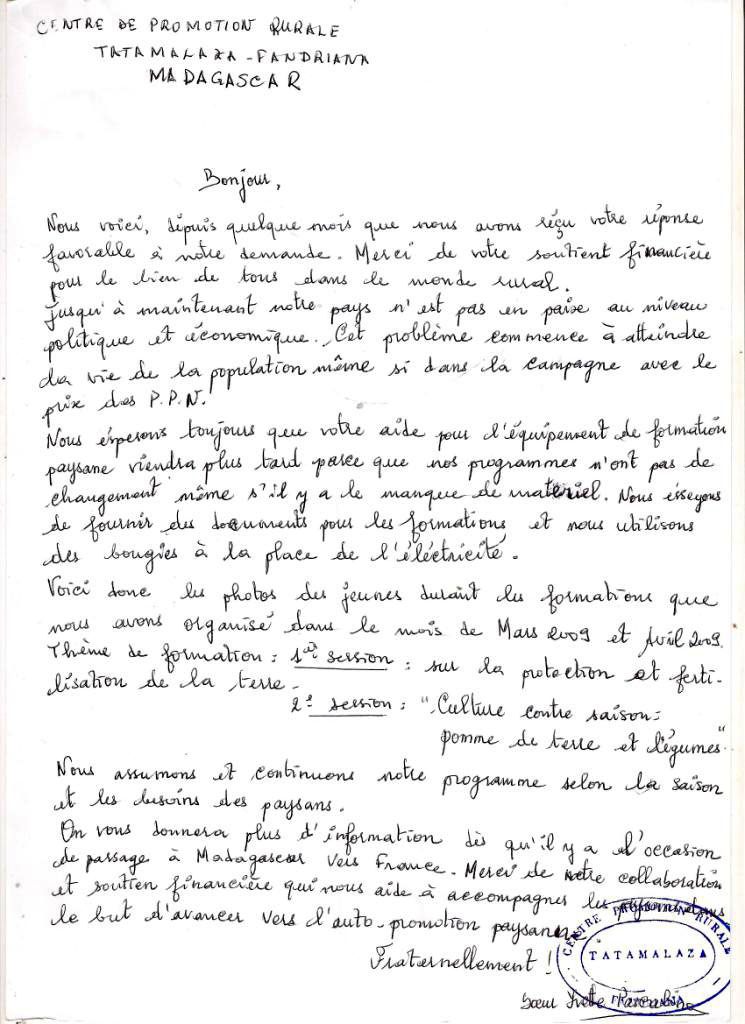 CENTRE DE PROMOTION RURALE
TATAMALAZA - FANDRIANA
MADAGASCAR
Bonjour,
Nous voici, depuis quelque mois que nous avons réçu votre réponse
favorable à notre demande. Merci de votre soutient financière
pour le bien de tous dans le monde rural.
Jusqu'à maintenant notre pays n'est pas en paix au niveau
politique et économique. Cet problème commence à atteindre
la vie de la population même si dans la campagne avec le
prix des P.P.N.
Nous ésperons toujours que votre aide pour l'équipement de formation
paysane viendra plus tard parce que nos programmes n'ont pas de
changement même s'il y a le manque de materiel. Nous ésseyons
de fournir des documents pour les formations et nous utilisons
des bougies à la place de l'éléctricité.
Voici donc les photos des jeunes durant les formations que
nous avons organisé dans le mois de Mars 2009 et Avril 2009.
Thème de formation : 1ère session : sur la protection et ferti-
lisation de la terre.
2è session : "Culture contre saison:
pomme de terre et légumes"
Nous assumons et continuons notre programme selon la saison
et les besoins des paysans.
On vous donnera plus d'information dès qu'il y a l'occasion
de passage à Madagascar vers France. Merci de votre collaboration
et soutien financière qui nous aide à accompagner les dans
le but d'avancer vers l'auto-promotion paysanne
Fraternellement !
CENTRE PROMOTION RURALE
TATAMALAZA
FANDRIANA
Soeur Yvette